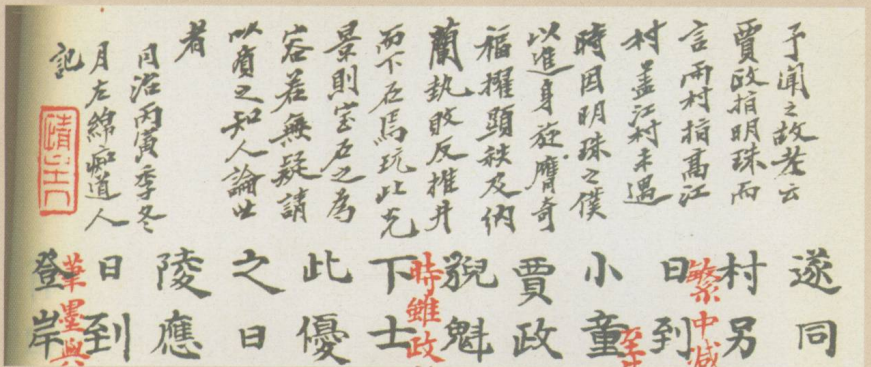 予聞之故老云
賈政指明珠而
言雨村指高江
村蓋江村未遇
時因明珠之僕
以進身旋膺奇
福擢顯秩及納
蘭執敗反推井
而下石焉玩此光
景則宝石之為
容若無疑請
以質之知人論世
者
同治丙寅季冬
月左綿痴道人
記
遂同
村另
繁中減
日到
至
小童
賈政
貎魁
時雖政
下士
此優
之日
陵應
日到
筆墨與
登岸